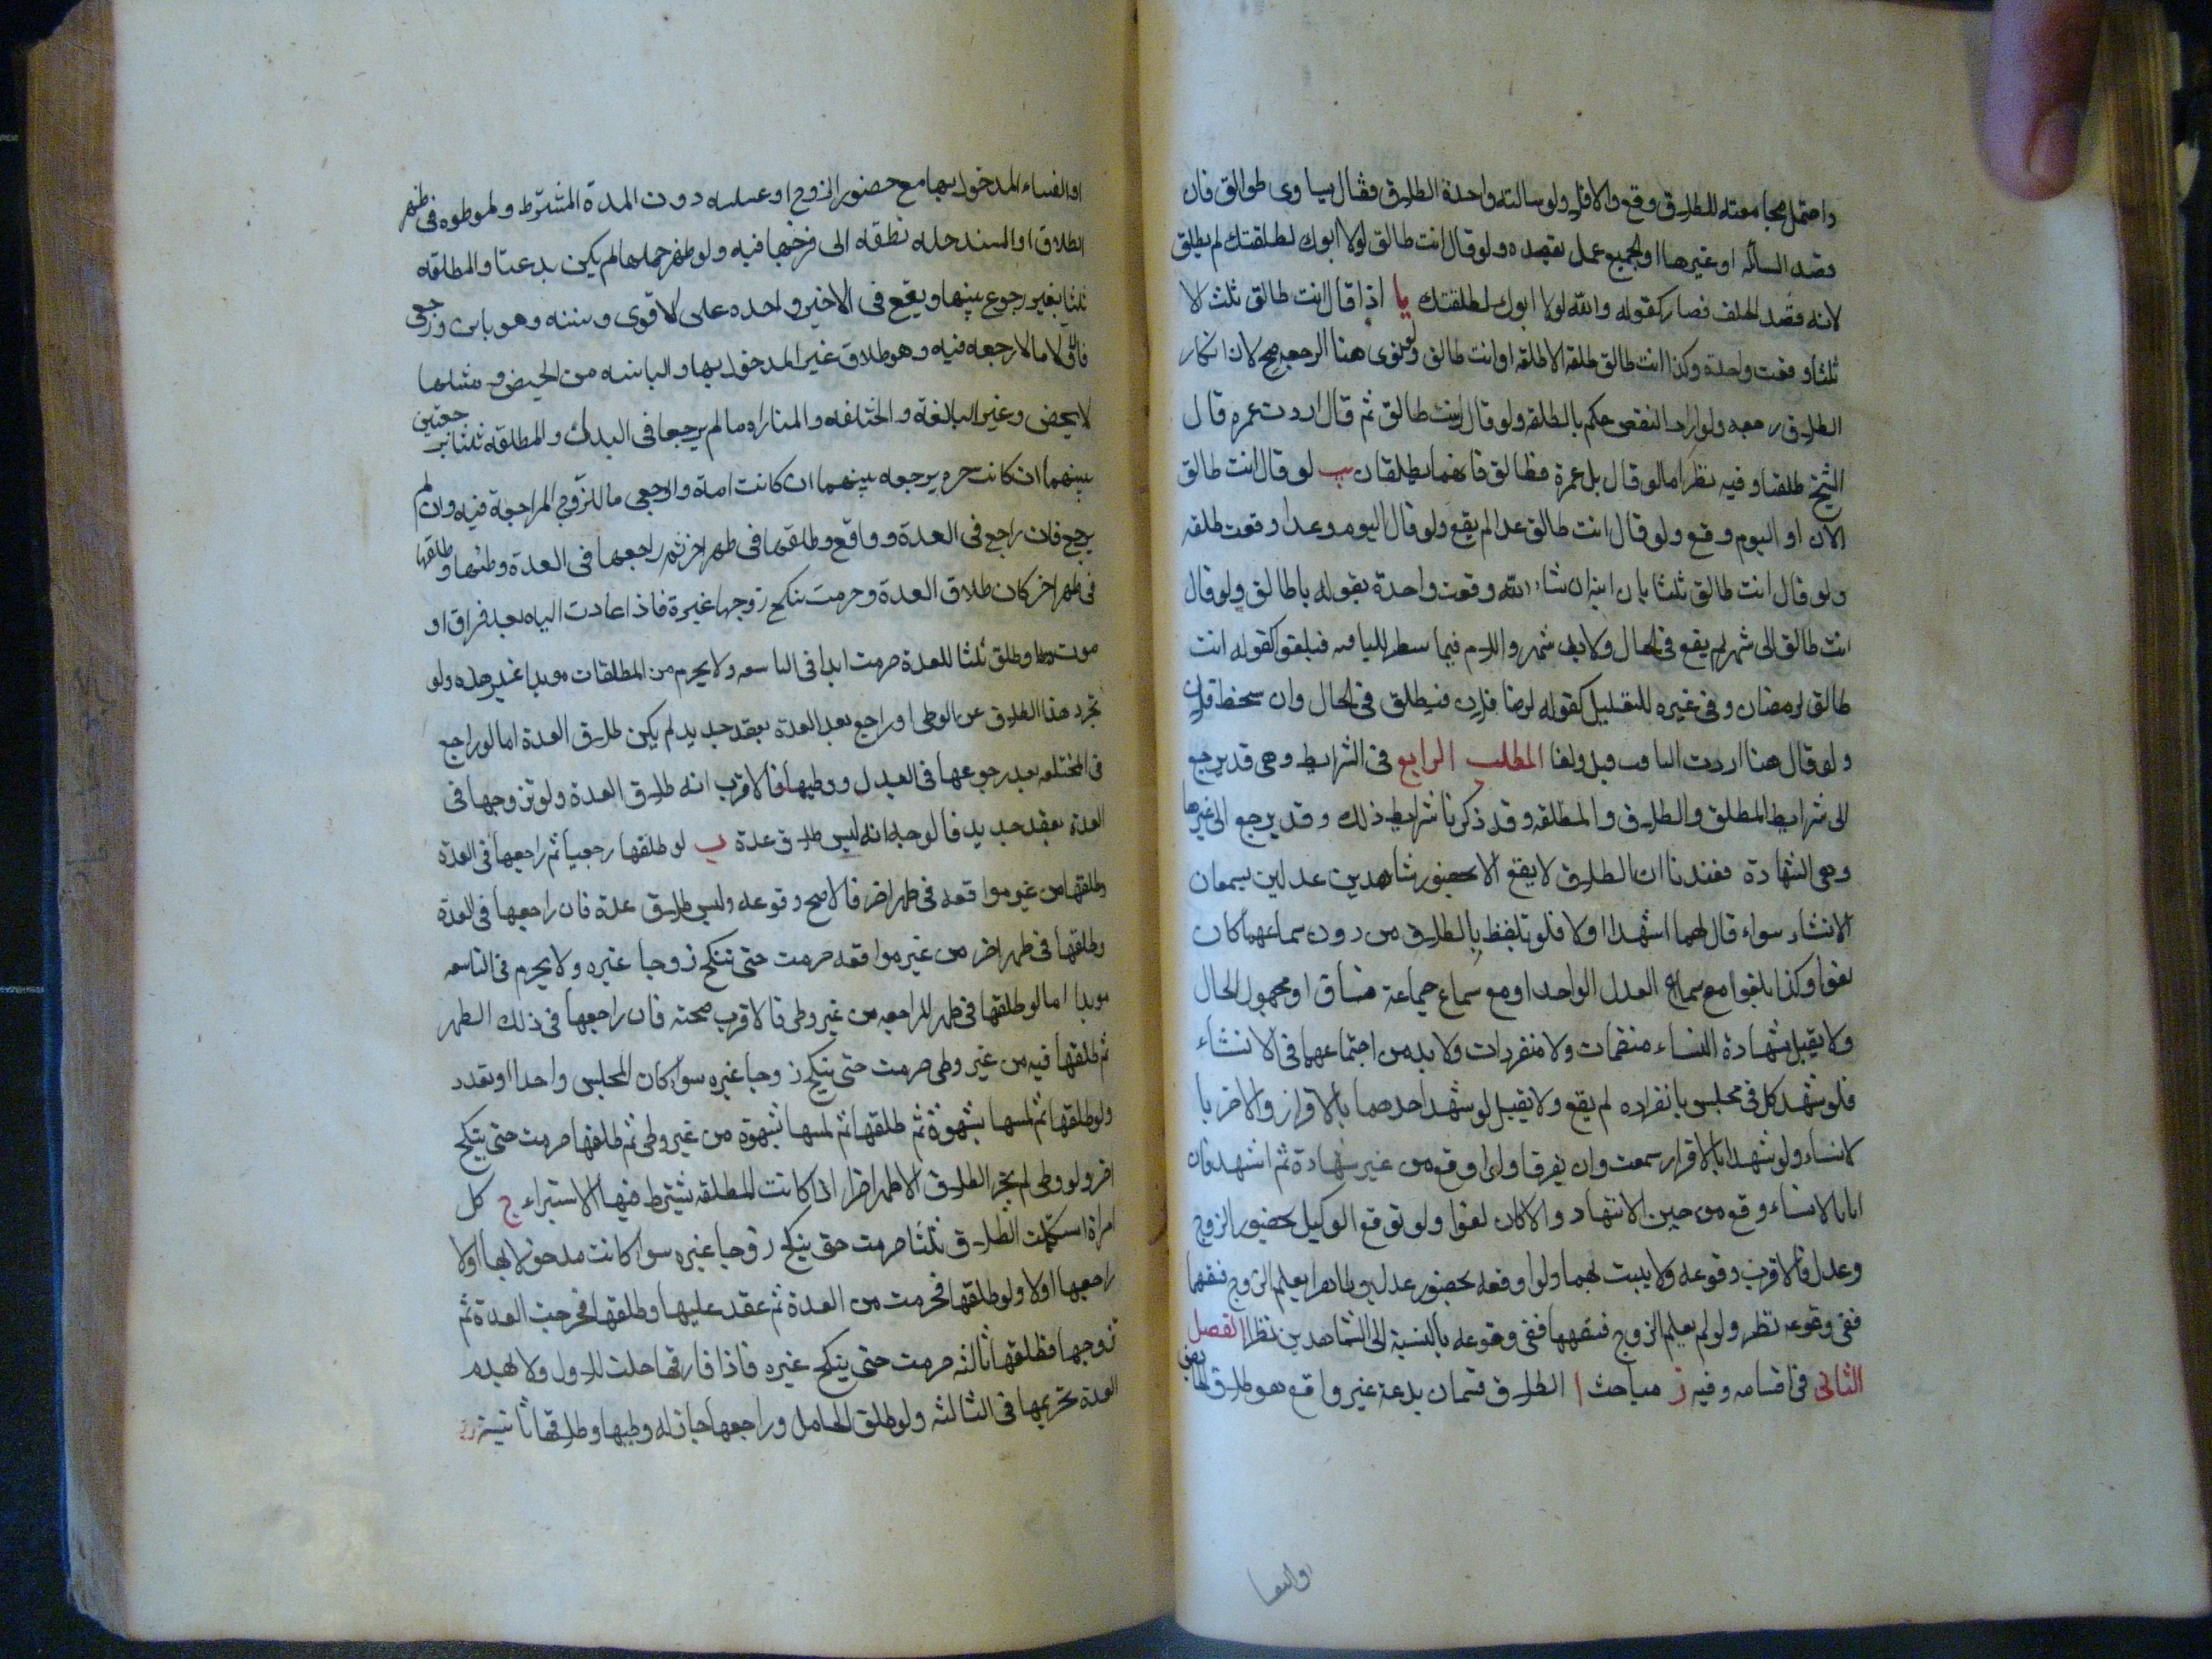 واحتمل مجامعته للطلاق وقع والا فلا ولو سالته واحدة الطلاق فقال نساوى طوالق فان
قصد السائله او غيرها او الجميع عمل بقصده ولو قال انت طالق لولا ابوك لطلقتك لم يطلق
لانه قصد الحلف فصار كقوله والله لولا ابوك لطلقتك يا اذا قال انت طالق ثلث لا
ثلثا وقعت واحدة وكذا انت طالق طلقه الا طلقه او انت طالق ولو نوى هنا الرجعه صح لان انكار
الطلاق رجعه ولو اراد النقض حكم بالطلقه ولو قال زينت طالق ثم قال اردت عمره قال
الشيخ طلقتا وفيه نظر اما لو قال بل عمرة فطالق فانهما يطلقان يب لو قال انت طالق
الان او اليوم وقع ولو قال انت طالق غدا لم يقع ولو قال اليوم وغدا وقعت طلقه
ولو قال انت طالق ثلثا يا ان شاء الله وقعت واحدة بقوله يا طالق ولو قال
انت طالق الى شهر لم يقع فى الحال ولا بعد شهر واللام فيما فيلغو كقوله انت
طالق لرمضان وفى غيره للتعليل كقوله لرضا فلان فيطلق فى الحال وان سخط فلان
ولو قال هنا اردت قبل ولغا المطلب الرابع فى الشرايط وهى قد يرجع
الى شرايط المطلق والطلاق والمطلقه وقد ذكرنا شرايط ذلك وقد يرجع الى غيرها
وهى الشهادة فعندنا ان الطلاق لا يقع الا بحضور شاهدين عدلين يسمعان
الانشاء سواء قال لهما اشهدا اولا فلو تلفظ بالطلاق من دون سماعهما كان
لغوا وكذا يلغوا مع سماع العدل الواحد او مع سماع جماعة فساق او مجهول الحال
ولا يقبل شهادة النساء منضمات ولا منفردات ولا بد من اجتماعهما فى الانشاء
فلو شهد كل فى مجلس بانفراده لم يقع ولا يقبل لو شهد احدهما بالاقرار والاخر با
لانشاء ولو شهدا بالاقرار سمعت وان تفرقا ولو اوقع من غير شهادة ثم اشهد فان
اتا بالانشاء وقع من حين الاشهاد والا كان لغوا ولو توقع الوكيل بحضور الزوج
وعدل فالاقرب وقوعه ولا يثبت بهما ولو اوقعه بحضور عدلين ظاهرا يعلم الزوج فسقهما
ففى وقوعه نظر ولو لم يعلم الزوج فسقهما ففى وقوعه بالنسبة الى الشاهدين نظر الفصل
الثانى فى اقسامه وفيه ز مباحث ا الطلاق قسمان بدعة غير واقع وهو طلاق الحايض
او النفساء المدخول بها مع حضور الزوج او غيبته دون المدة المشترط ولموطوه فى طهر
الطلاق او المستدخله نطفه الى فرجها فيه ولو ظهر حملها لم يكن بدعتا والمطلقه
ثلثا بغير رجوع بينها ويقع فى الاخير واحده على الاقوى وسنه وهو باين ورجعى
فالاول ما لا رجعه فيه وهو طلاق غير المدخول بها واليائسه من الحيض ومثلها
لا يحيض وغير البالغة والمختلفه والمباراه ما لم يرجعا فى البذل والمطلقه ثلثا برجعتين
بينهما ان كانت حره برجعه بينهما ان كانت امة والرجعى ما للزوج المراجعة فيه وان لم
يرجع فان راجع فى العدة وواقع وطلقها فى طهر اخر ثم راجعها فى العدة وطئها وطلقها
فى طهر اخر كان طلاق العدة وحرمت ينكح زوجها غيرة فاذا عادت اليه بعد فراق او
موت وطلق ثلثا للعدة حرمت ابدا فى التاسعه ولا يحرم من المطلقات موبدا غير هذه ولو
تجرد هذا الطلاق عن الوطى او راجع بعد العدة بعقد جديد لم يكن طلاق العدة اما لو راجع
فى المختلعه بعد رجوعها فى البذل ووطيها فالاقرب انه طلاق العدة ولو تزوجها فى
العدة بعقد جديد فالوجه انه ليس طلاق عدة ب لو طلقها رجعيا ثم راجعها فى العدة
وطلقها من غير مواقعه فى طهر اخر فالاصح وقوعه وليس طلاق عدة فان راجعها فى العدة
وطلقها فى طهر اخر من غير مواقعه حرمت حتى تنكح زوجا غيره ولا يحرم فى التاسعه
موبدا اما لو طلقها فى طهر المراجعه من غير وطى فالاقرب صحته فان راجعها فى ذلك الطهر
ثم طلقها فيه من غير وطى حرمت حتى ينكح زوجا غيره سوا كان المجلس واحدا او تعدد
ولو طلقها ثم لمسها بشهوة ثم طلقها ثم لمسها بشهوة من غير وطى ثم طلقها حرمت حتى ينكح
اخر ولو وطى لم يجز الطلاق الا طهر اخر اذا كانت المطلقه يشترط فيها الاستبراء ج كل
امراة استكملت الطلاق ثلثا حرمت حتى ينكح زوجا غيره سوا كانت مدخولا بها اولا
راجعها اولا ولو طلقها فخرجت من العدة ثم عقد عليها وطلقها فخرجت العدة ثم
تزوجها فطلقها ثالثه حرمت حتى ينكح غيره فاذا فارقها حلت للاول ولا يهدم
العدة تحريمها فى الثالثه ولو طلق الحامل وراجعها جاز له وطيها وطلاقها ثانية